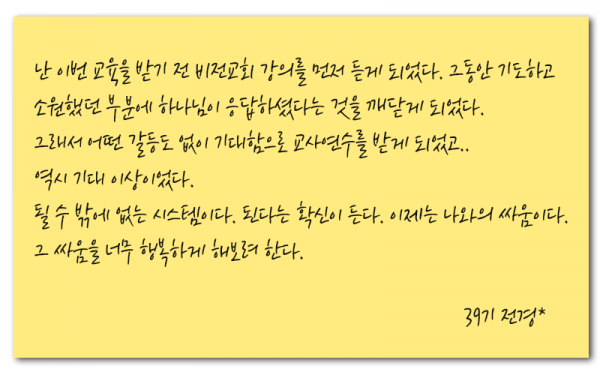 난 이번 교육을 받기 전 비전교회 강의를 먼저 듣게 되었다. 그동안 기도하고
소원했던 부분에 하나님이 응답하셨다는 것을 깨닫게 되었다.
그래서 어떤 갈등도 없이 기대함으로 교사연수를 받게 되었고..
역시 기대 이상이었다.
될 수 밖에 없는 시스템이다. 된다는 확신이 든다. 이제는 나와의 싸움이다.
그 싸움을 너무 행복하게 해보려 한다.
39기 전경*